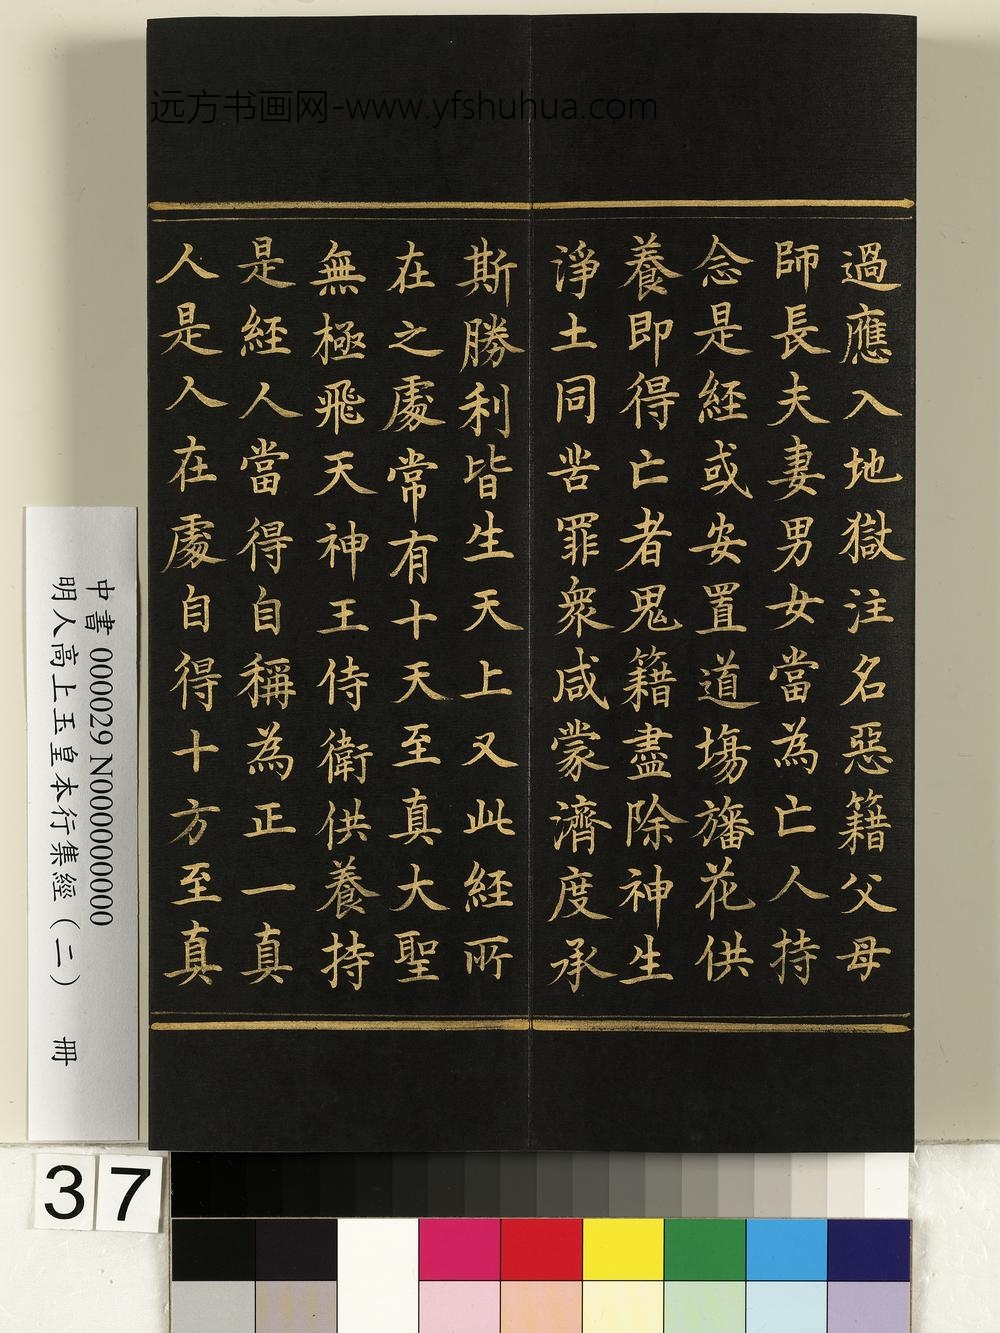 远方书画网-www.yfshuhua.com
過應入地獄注名惡籍父母
師長夫妻男女當為亡人持
念是經或安置道場旛花供
養即得亡者鬼籍盡除神生
淨土同苦罪衆咸蒙濟度承
斯勝利皆生天上又此經所
在之處常有十天至真大聖
無極飛天神王侍衛供養持
是經人當得自稱為正一真
人是人在處自得十方至真
中書 000029 N000000000
明人高上玉皇本行集經（二） 冊
37